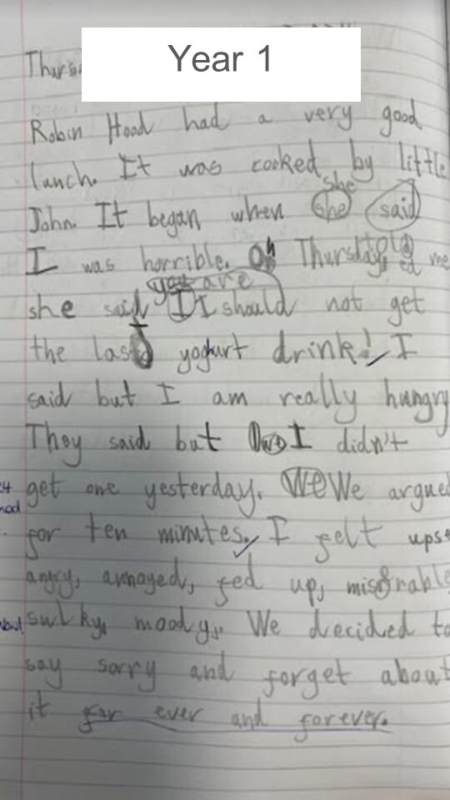 Year 1
Robin Hood had a very good
lunch. It was cooked by little
she
John. It began when she said
I was horrible. On Thursday told me
you are
she said I I should not get
the last yogurt drink! I
said but I am really hungry
They said but I didn't
get one yesterday. We We argue
for ten minutes. I felt upse
angry, annoyed, fed up, misrable
sulky, moody,. We decided to
say sorry and forget about
it for ever and forever.